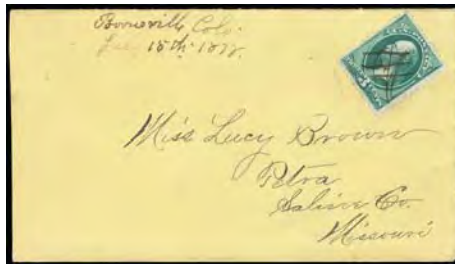 Booneville, Colo.
15th 1877.
Miss Lucy Brown
Petra
Saline Co.
Missouri